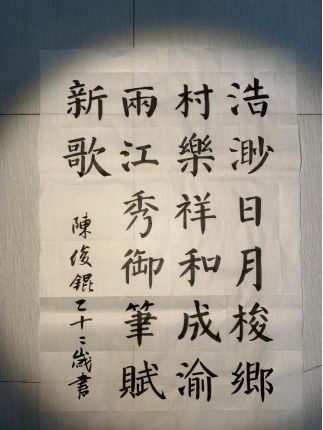 浩渺日月梭鄉
村樂祥和成渝
雨江秀御筆賦
新歌
陳俊錕七十二歲書